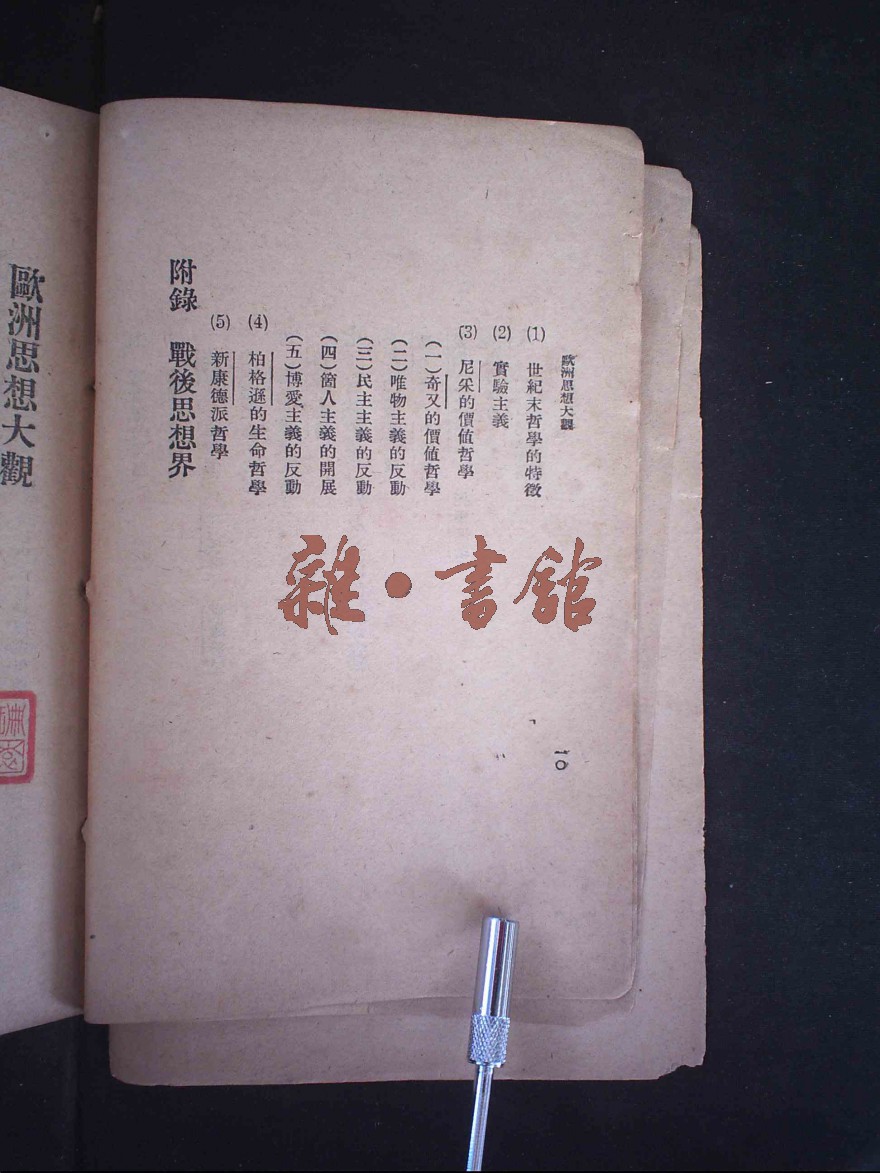 歐洲思想大觀
(1) 世紀末哲學的特徵
(2) 實驗主義
(3) 尼采的價値哲學
(一)奇又的價値哲學
(二)唯物主義的反動
(三)民主主義的反動
(四)箇人主義的開展
(五)博愛主義的反動
(4) 柏格遜的生命哲學
(5) 新康德派哲學
附錄 戰後思想界
一〇
雜·書館
歐洲思想大觀